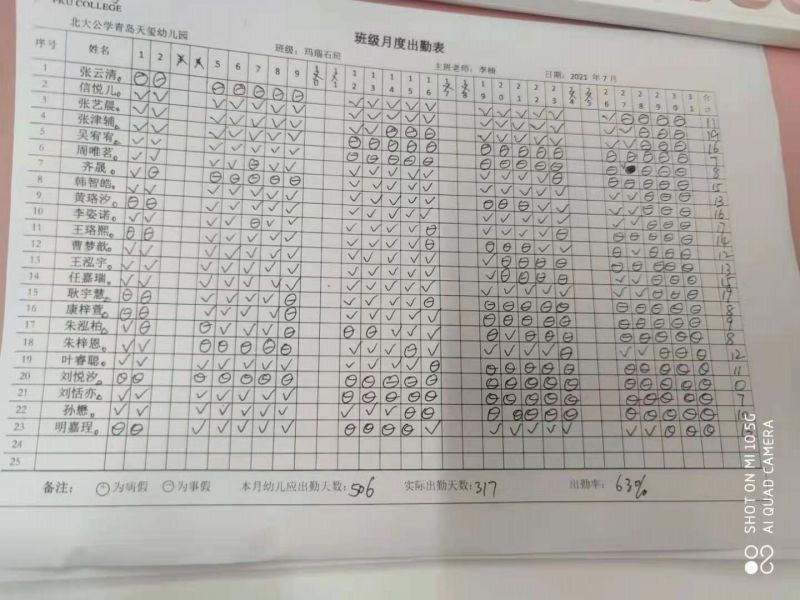 PKU COLLEGE
北大公学青岛天玺幼儿园
班级月度出勤表
班级：玛瑙石班 主班老师：李楠 日期：2021 年 7 月
序号 姓名 1 2 5 6 7 8 9 12 13 14 15 16 19 20 21 22 23 26 27 28 29 30 31 合计
1 张云清 11
2 信悦儿 19
3 张艺晨 16
4 张津辅 7
5 吴宥宥 8
6 周唯茗 15
7 齐晟 13
8 韩智皓 16
9 黄珞汐 17
10 李姿诺 14
11 王珞熙 12
12 曹梦歆 13
13 王泓宇
14 任嘉瑞 17
15 耿宇慧 8
16 康梓萱 9
17 朱泓柏 8
18 朱梓恩 12
19 叶睿聪 11
20 刘悦汐 0
21 刘恬亦 7
22 孙懋
23 明嘉珵
24
25
备注： 为病假 为事假 本月幼儿应出勤天数：506 实际出勤天数：317 出勤率：63%
SHOT ON MI 10 5G
AI QUAD CAMERA